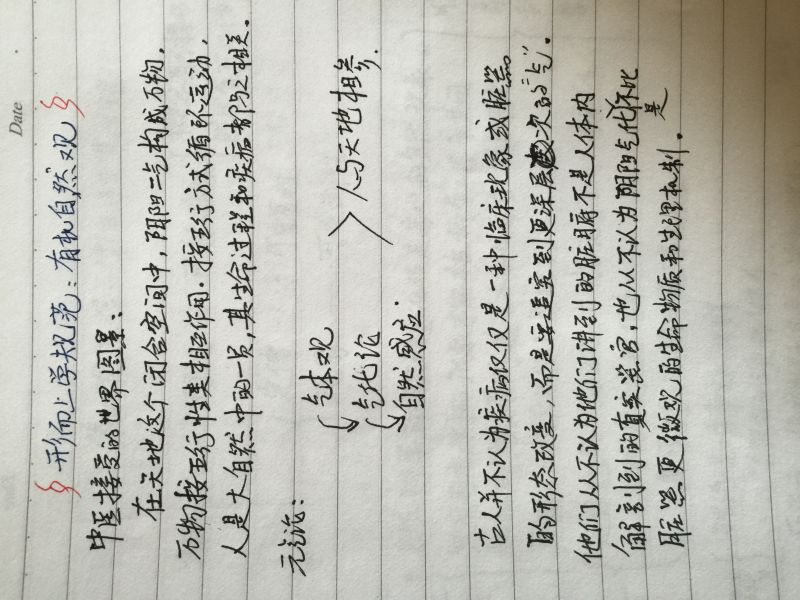 Date
§ 形而上学规范：有机自然观 §
中医接受的世界图景：
在天地这个闭合空间中，阴阳二气构成万物，
万物按五行性类相互作用。按五行方式循环运动，
人是大自然中的一员，其生命过程和疾病都与之相关。
元论：
气本观
气化论
自然感应．
人与天地相参．
古人并不认为疾病仅仅是一种临床现象或脏器
的形态改变，而是要追究到更深层次的“气”。
他们从不认为他们讲到的脏腑不是人体内
解剖到的真实器官，也从不认为阴阳气化不比
是
脏器更微观的生命物质和生理机制。